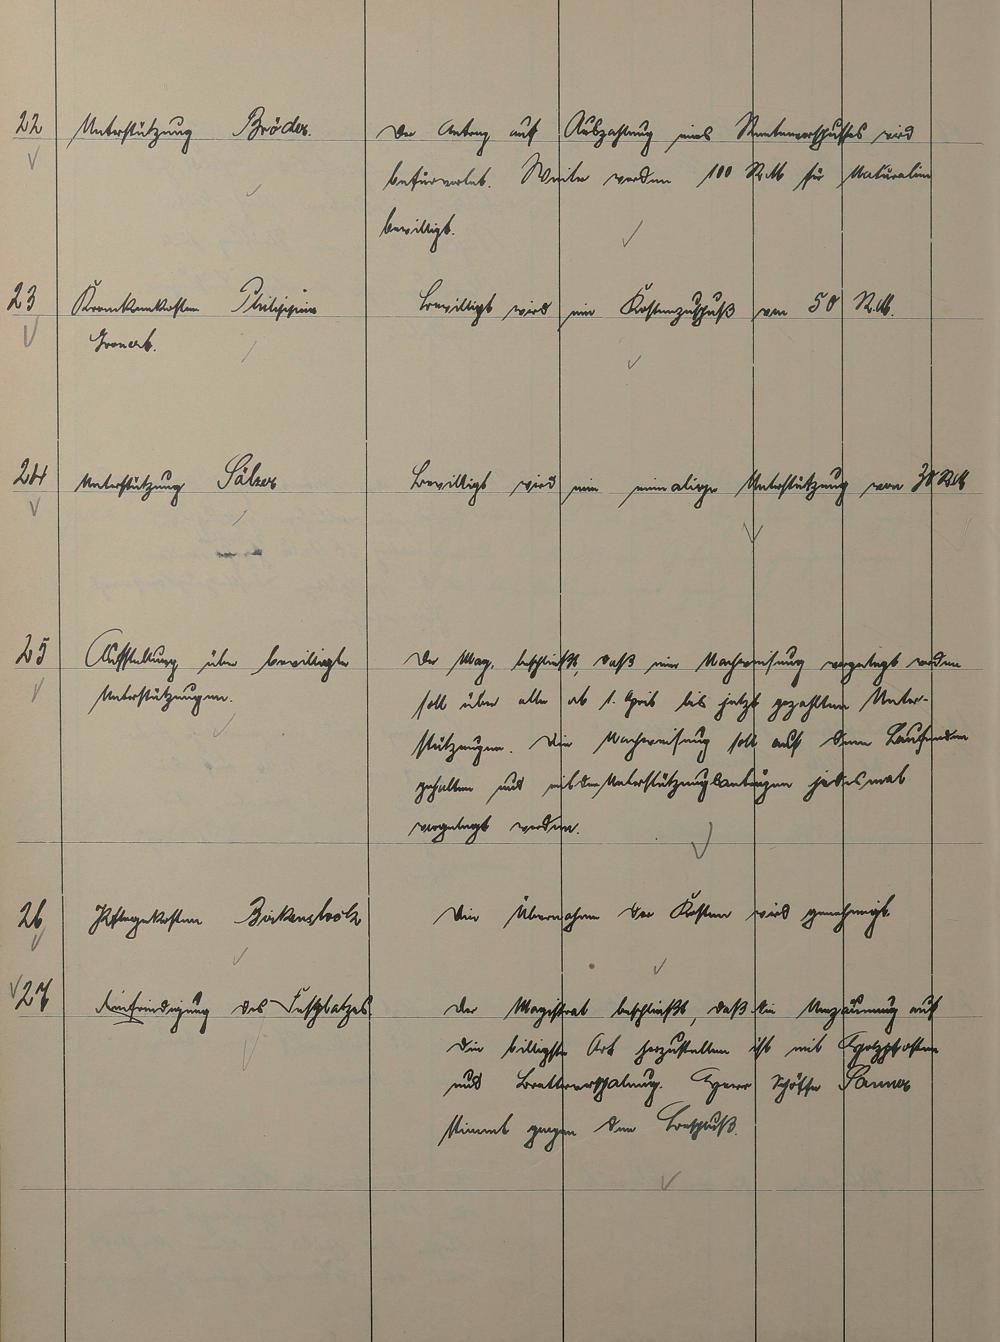 22 Unterstützung Bröder. Der Antrag auf Auszahlung eines Rentenvorschusses wird
befürwortet. Weiter werden 100 RM für Naturalien
bewilligt.
23 Krankenkosten Philippine Bewilligt wird ein Kostenzuschuß von 50 RM.
Gronert.
24 Unterstützung Sälzer Bewilligt wird eine einmalige Unterstützung von 30 RM
25 Aufstellung über bewilligte Der Mag. beschließt, daß eine Nachweisung vorgelegt werden
Unterstützungen. soll über alle ab 1. April bis jetzt gezahlten Unter-
stützungen. Die Nachweisung soll auf dem Laufenden
gehalten und mit den Unterstützungsanträgen jedesmal
vorgelegt werden.
26 Pflegekosten Birkenstock Die Übernahme der Kosten wird genehmigt.
27 Einfriedigung des Festplatzes. Der Magistrat beschließt, daß die Umzäunung auf
die billigste Art herzustellen ist mit Holzpfosten
und Bretterverschalung. Herr Schöffe Sanner
stimmt gegen den Beschluß.